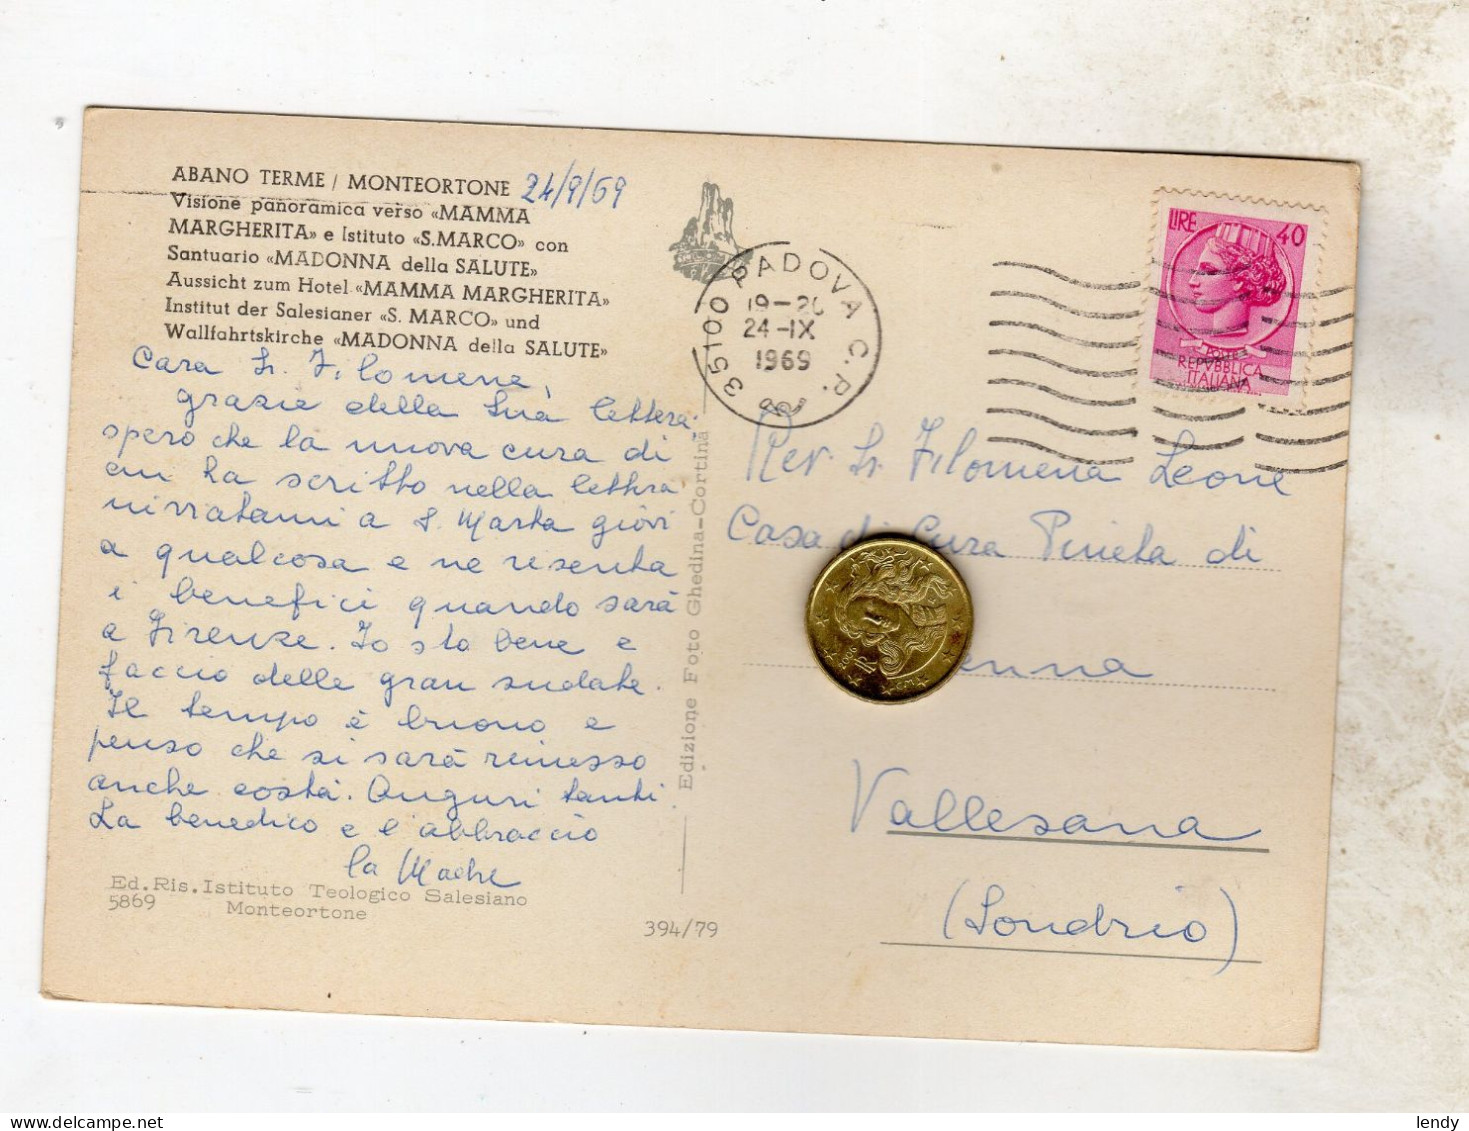 ABANO TERME / MONTEORTONE 24/9/69
Visione panoramica verso «MAMMA
MARGHERITA» e Istituto «S. MARCO» con
Santuario «MADONNA della SALUTE»
Aussicht zum Hotel «MAMMA MARGHERITA»
Institut der Salesianer «S. MARCO» und
Wallfahrtskirche «MADONNA della SALUTE»
Cara Sr. Filomena,
grazie della Sua lettera.
spero che la nuova cura di
cui ha scritto nella lettera
a S. Marta giovi
a qualcosa e ne risenta
i benefici quando sarà
a Firenze. Io sto bene e
faccio delle gran sudate.
Il tempo è buono e
penso che si sarà rimesso
anche costà. Auguri tanti.
La benedico e l'abbraccio
la Madre
Ed. Ris. Istituto Teologico Salesiano
5869 Monteortone
394/79
Edizione Foto Ghedina-Cortina
35100 PADOVA C.P.
19-20
24-IX
1969
LIRE 40
POSTE
REPVBBLICA
ITALIANA
Rev. Sr. Filomena Leone
Casa di Cura Pineta di
enna
Vallesana
(Sondrio)
2006
RI
lendy